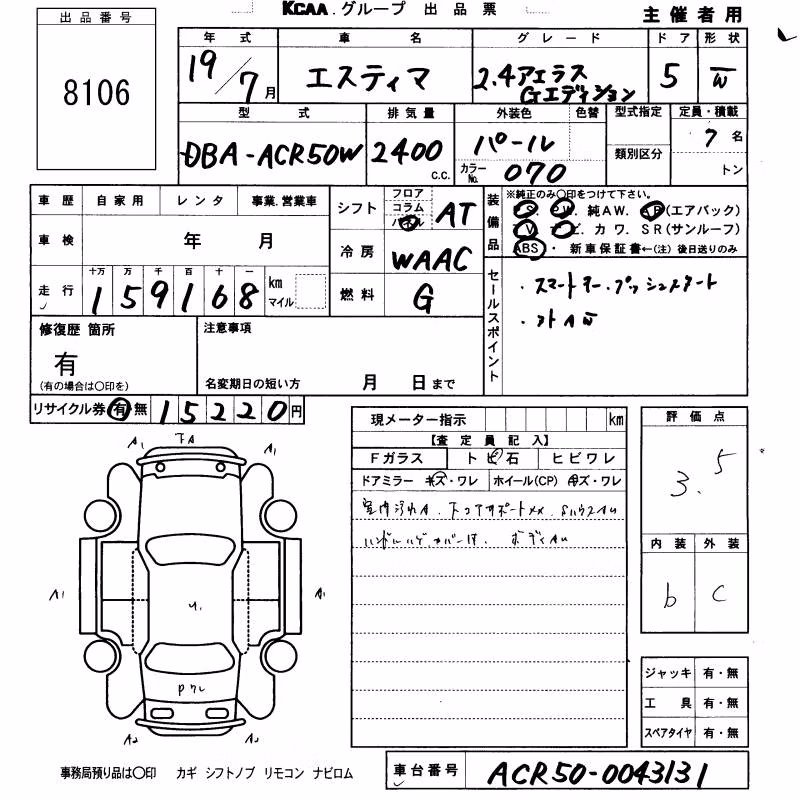 出品番号
8106
KCAA.グループ 出品票
主催者用
年式 車名 グレード ドア 形状
19/7月 エスティマ 2.4アエラス Gエディション 5 W
型式 排気量 外装色 色替 型式指定 定員・積載
DBA-ACR50W 2400 c.c. パール 類別区分 7名
カラーNo. 070 トン
車歴 自家用 レンタ 事業.営業車
車検 年 月
走行 十万 万 千 百 十 一
159168 km マイル
シフト フロア コラム パネル AT
冷房 WAAC
燃料 G
装備品 ※純正のみ○印をつけて下さい。
PS. PW. 純AW. AB(エアバック)
TV. ナビ. カワ. SR(サンルーフ)
ABS・ 新車保証書←(注)後日送りのみ
セールスポイント
・スマートキー.プッシュスタート
修復歴 箇所
有
(有の場合は○印を)
注意事項
名変期日の短い方 月 日まで
リサイクル券 有 無 15220円
現メーター指示 km
【査定員記入】
Fガラス トビ石 ヒビワレ
ドアミラー キズ・ワレ ホイール(CP) キズ・ワレ
室内汚れA.
ボディAU
評価点
3.5
内装 外装
b C
ジャッキ 有・無
工具 有・無
スペアタイヤ 有・無
A1 A1
A1 A1
A2 A2
事務局預り品は○印 カギ シフトノブ リモコン ナビロム
車台番号 ACR50-0043131